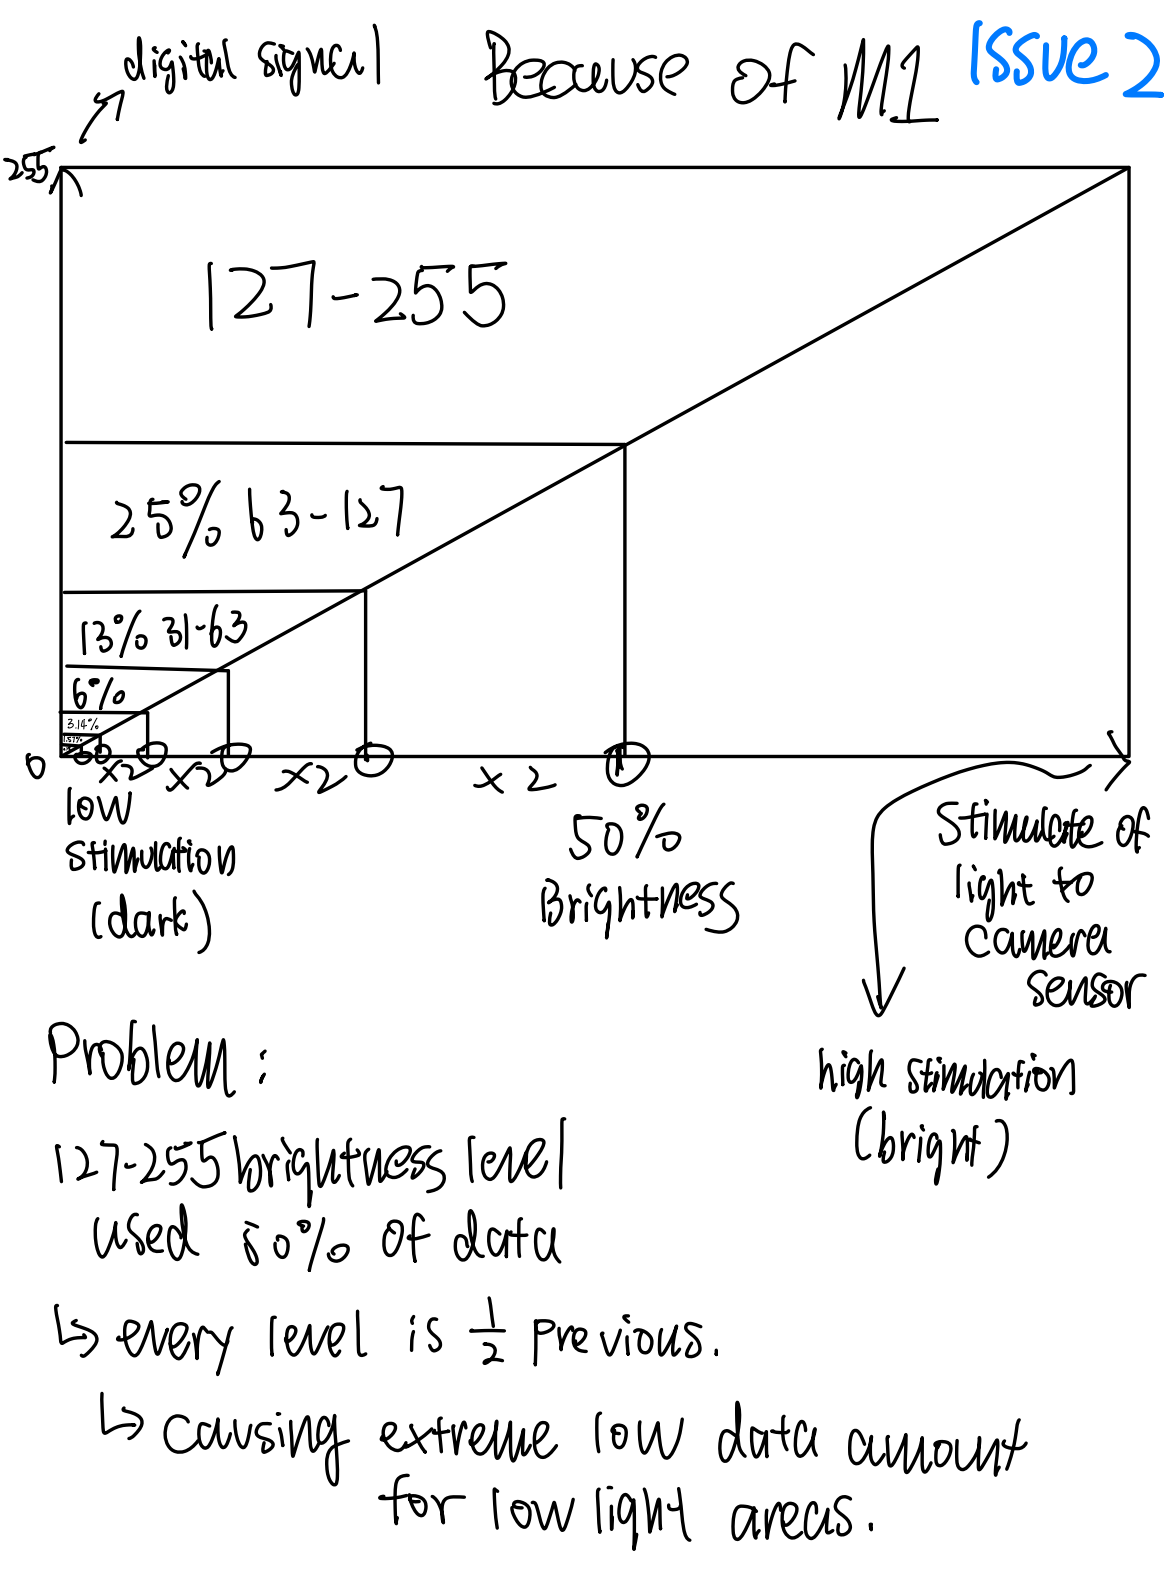 digital signal
Because of M1
Issue 2
255
127-255
25% 63-127
13% 31-63
6%
3.14%
1.57%
0
x2
x2
x2
x2
low
stimulation
(dark)
50%
Brightness
Stimulate of
light to
camera
sensor
high stimulation
(bright)
Problem:
127-255 brightness level
used 50% of data
↳ every level is 1/2 previous.
↳ causing extreme low data amount
for low light areas.